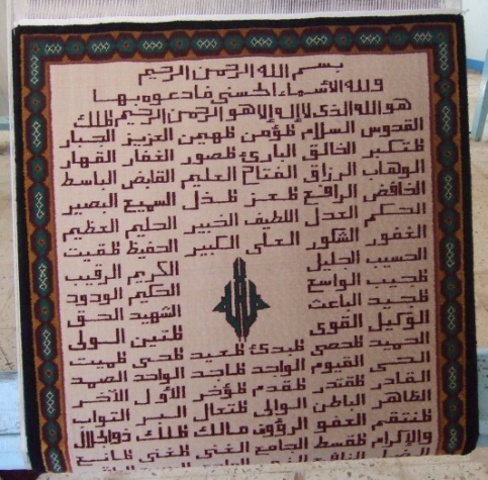 بسم الله الرحمن الرحيم
ولله الأسماء الحسنى فادعوه بها
هو الله الذي لا إله إلا هو الرحمن الرحيم ملك
القدوس السلام مؤمن مهيمن العزيز الجبار
متكبر الخالق البارئ مصور الغفار القهار
الوهاب الرزاق الفتاح العليم القابض الباسط
الخافض الرافع معز مذل السميع البصير
الحكم العدل اللطيف الخبير الحليم العظيم
الغفور الشكور العلي الكبير الحفيظ مقيت
الحسيب الجليل الكريم الرقيب
مجيب الواسع الحكيم الودود
مجيد الباعث الشهيد الحق
الوكيل القوي متين الولي
الحميد محصي مبدئ معيد محي مميت
الحي القيوم الواجد ماجد الواحد الصمد
القادر مقتدر مقدم مؤخر الأول الآخر
الظاهر الباطن الوالي متعال البر التواب
منتقم العفو الرؤوف مالك ملك ذوالجلال
والإكرام مقسط الجامع الغني مغني مانع